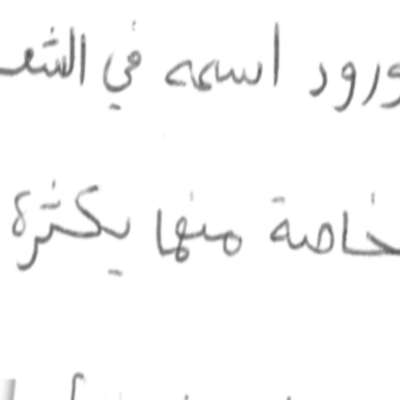 ورود اسمه في الشعـ
خاصة منها بكثرة